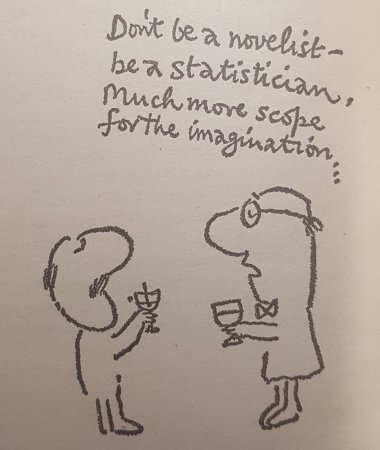 Don't be a novelist—
be a statistician,
Much more scope
for the imagination...